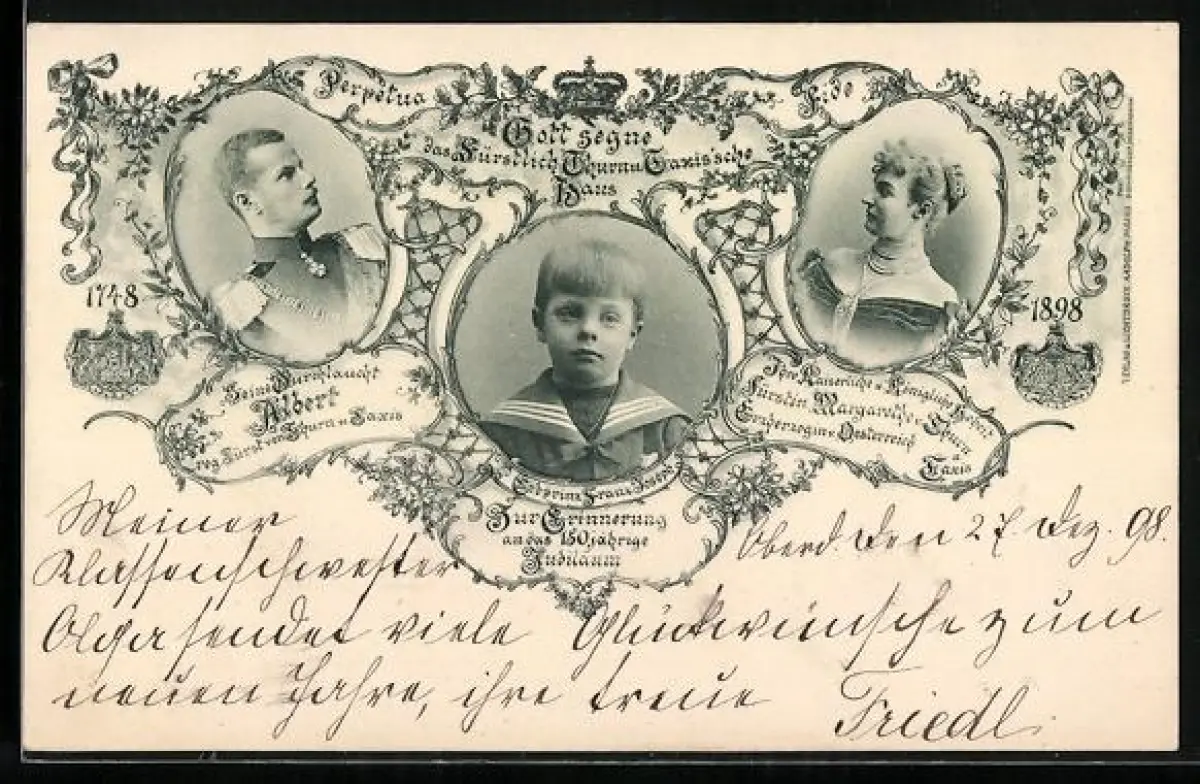 Perpetua Fide
Gott segne
das Fürstlich Thurn u. Taxis'sche
Haus
1748
1898
Seine Durchlaucht
Albert
reg. Fürst von Thurn u. Taxis
Ihre Kaiserliche u. Königliche Hoheit
Fürstin Margarethe v. Thurn u.
Erzherzogin v. Oesterreich
Taxis
Erbprinz Franz Joseph
Zur Erinnerung
an das 150jährige
Jubiläum
Oberd. den 27. Dez. 98.
Meiner
Klassenschwester
Olga sendet viele Glückwünsche zum
neuen Jahre, ihre treue
Friedl.